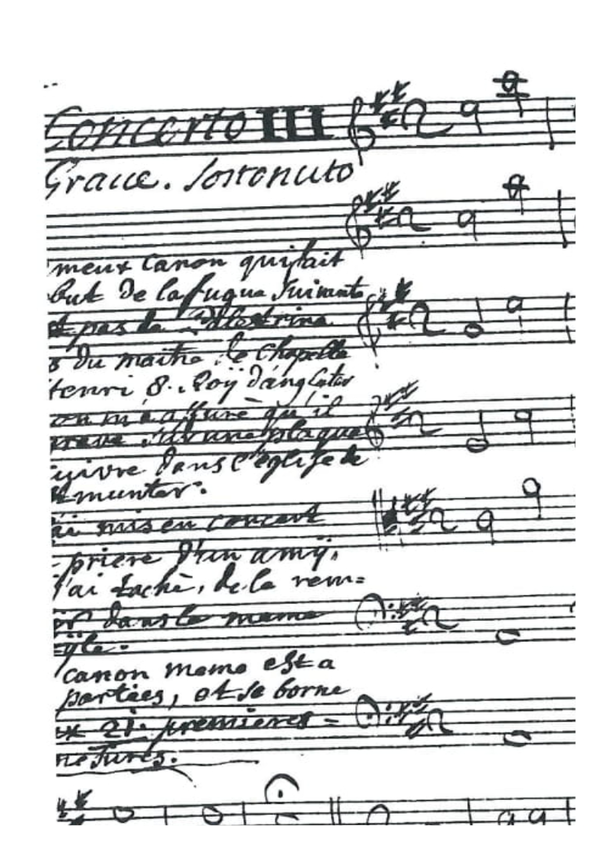 Concerto III
Grave. Sostenuto
meux canon qui fait
but de la fugue suivante
t pas de Palestrina
s du maitre de chapelle
Henri 8. Roÿ d'angleter
on m'a assuré qu'il
grave sur une plaque
uivre dans l'église de
munster.
ai mis en concert
priere d'un amÿ,
j'ai tachè, de le rem=
dans le meme
ÿle.
canon meme est a
parties, et se borne
ux 21. premières =
mesures.